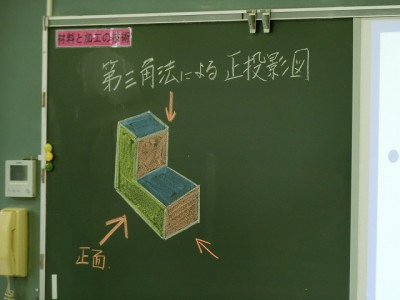 材料と加工の技術
第三角法による正投影図
正面